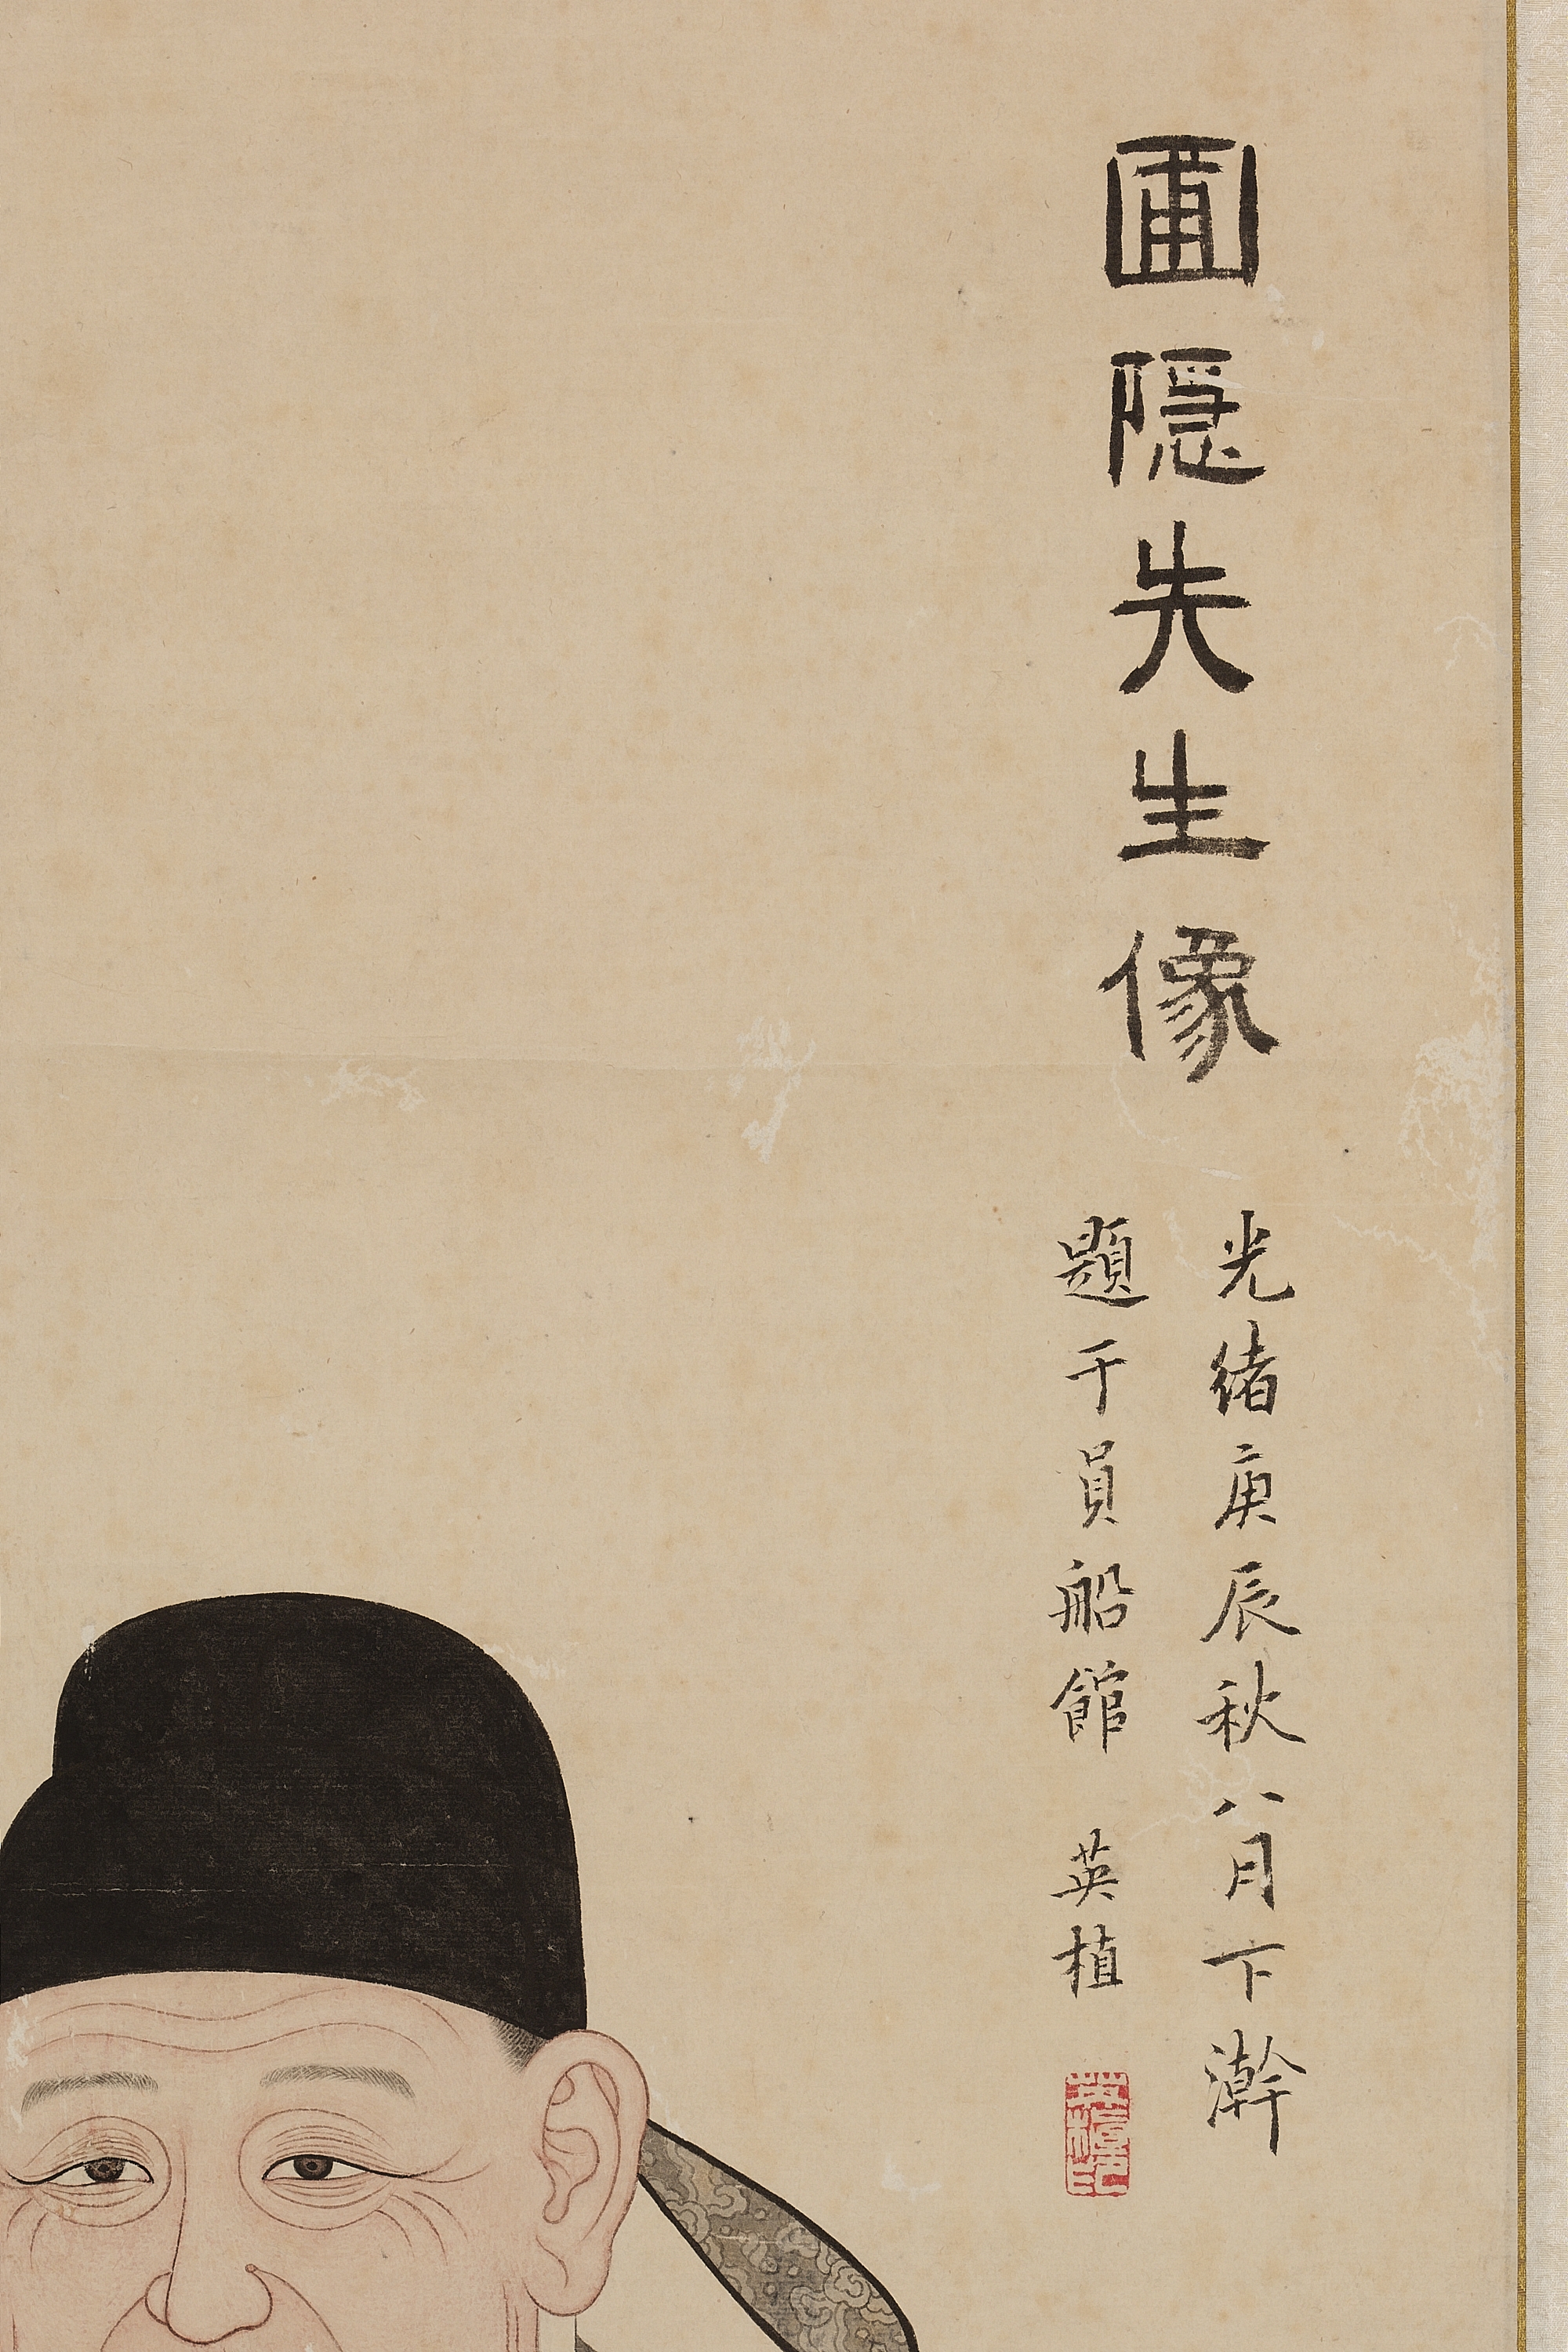 圃隱先生像
光緒庚辰秋八月下澣
題于員船館 英植
英植印